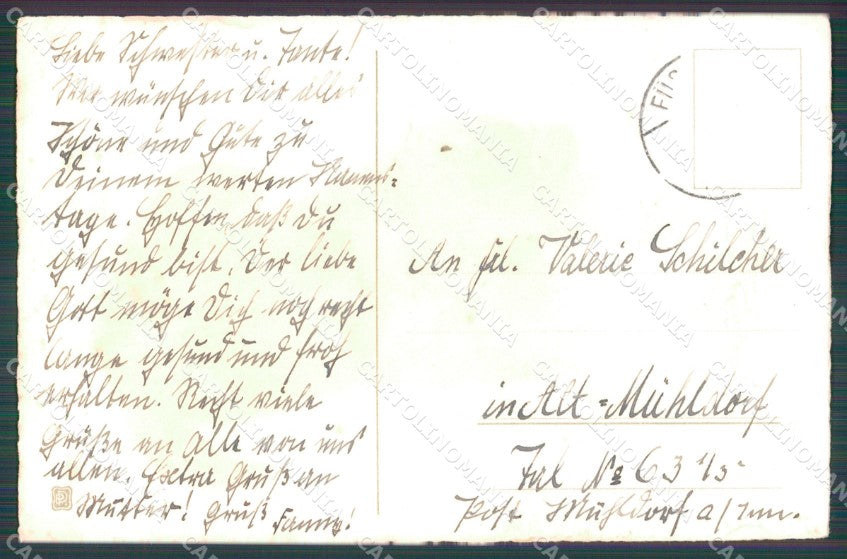 Liebe Schwester u. Tante!
Wir wünschen Dir alles
Schöne und Gute zu
Deinem werten Namens=
tage. Hoffen, daß Du
gesund bist. Der liebe
Gott möge Dich noch recht
lange gesund und froh
erhalten. Recht viele
Grüße an alle von uns
allen. Extra Gruß an
Mutter! Gruß Fanny!
An Frl. Valerie Schilcher
in Alt=Mühldorf,
Tal № 63 1/5
Post Mühldorf a/Inn.
CARTOLINOMANIA